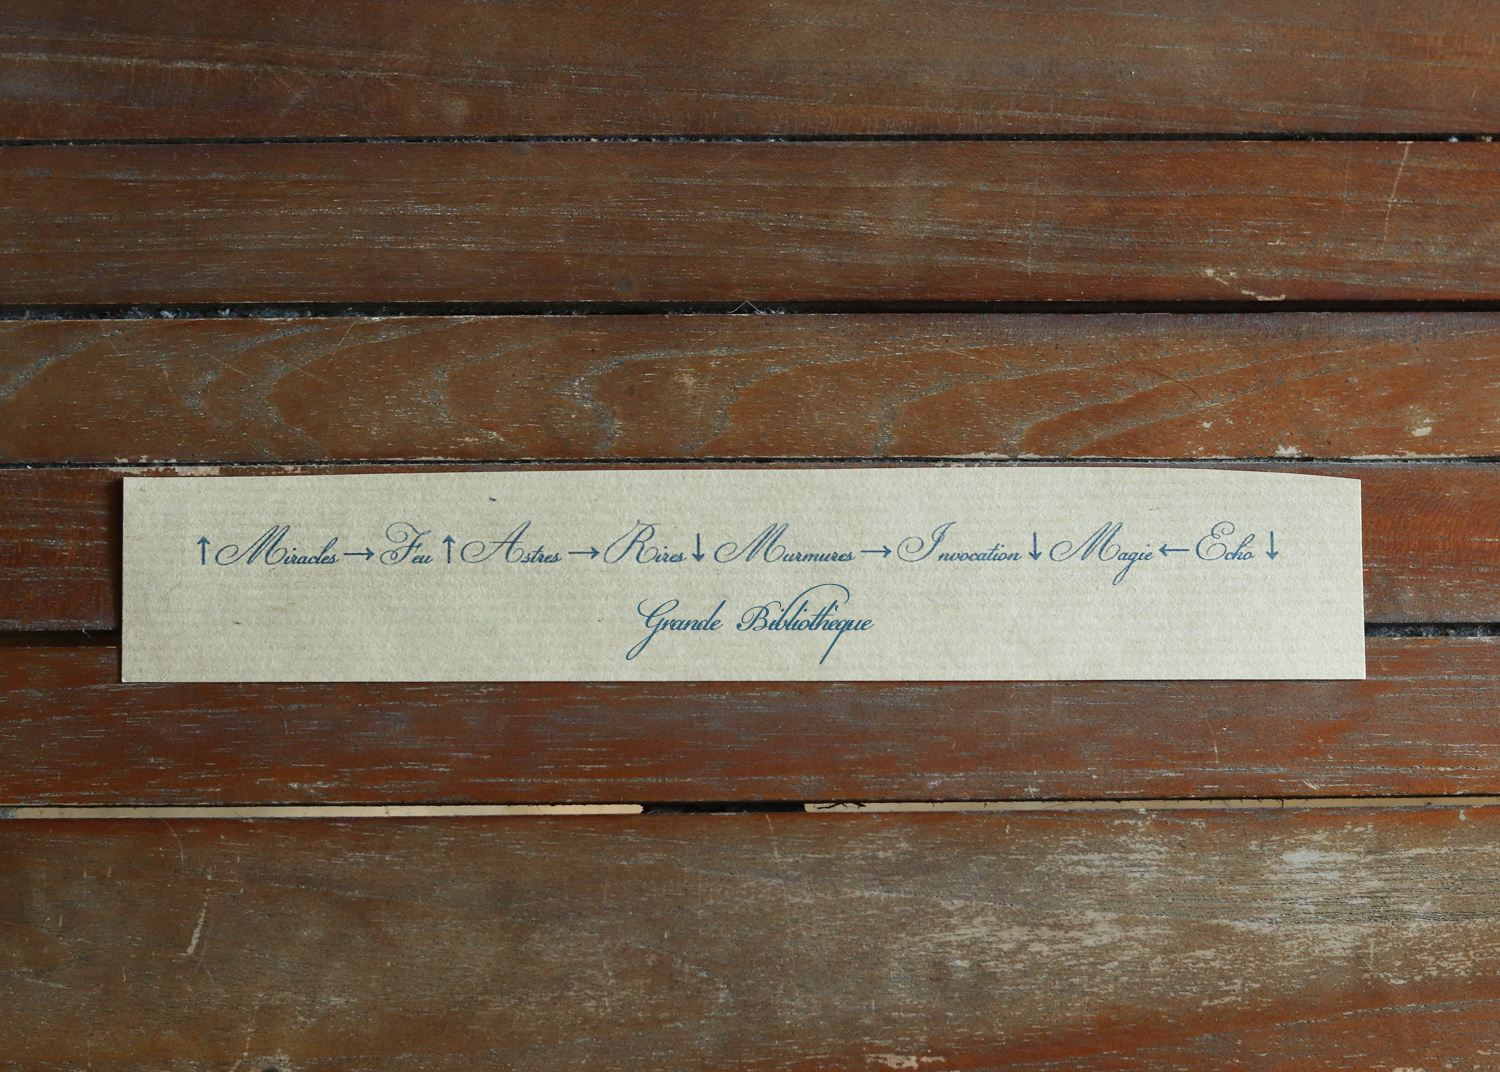 ↑ Miracles → Feu ↑ Astres → Rires ↓ Murmures → Invocation ↓ Magie ← Echo ↓
Grande Bibliothèque